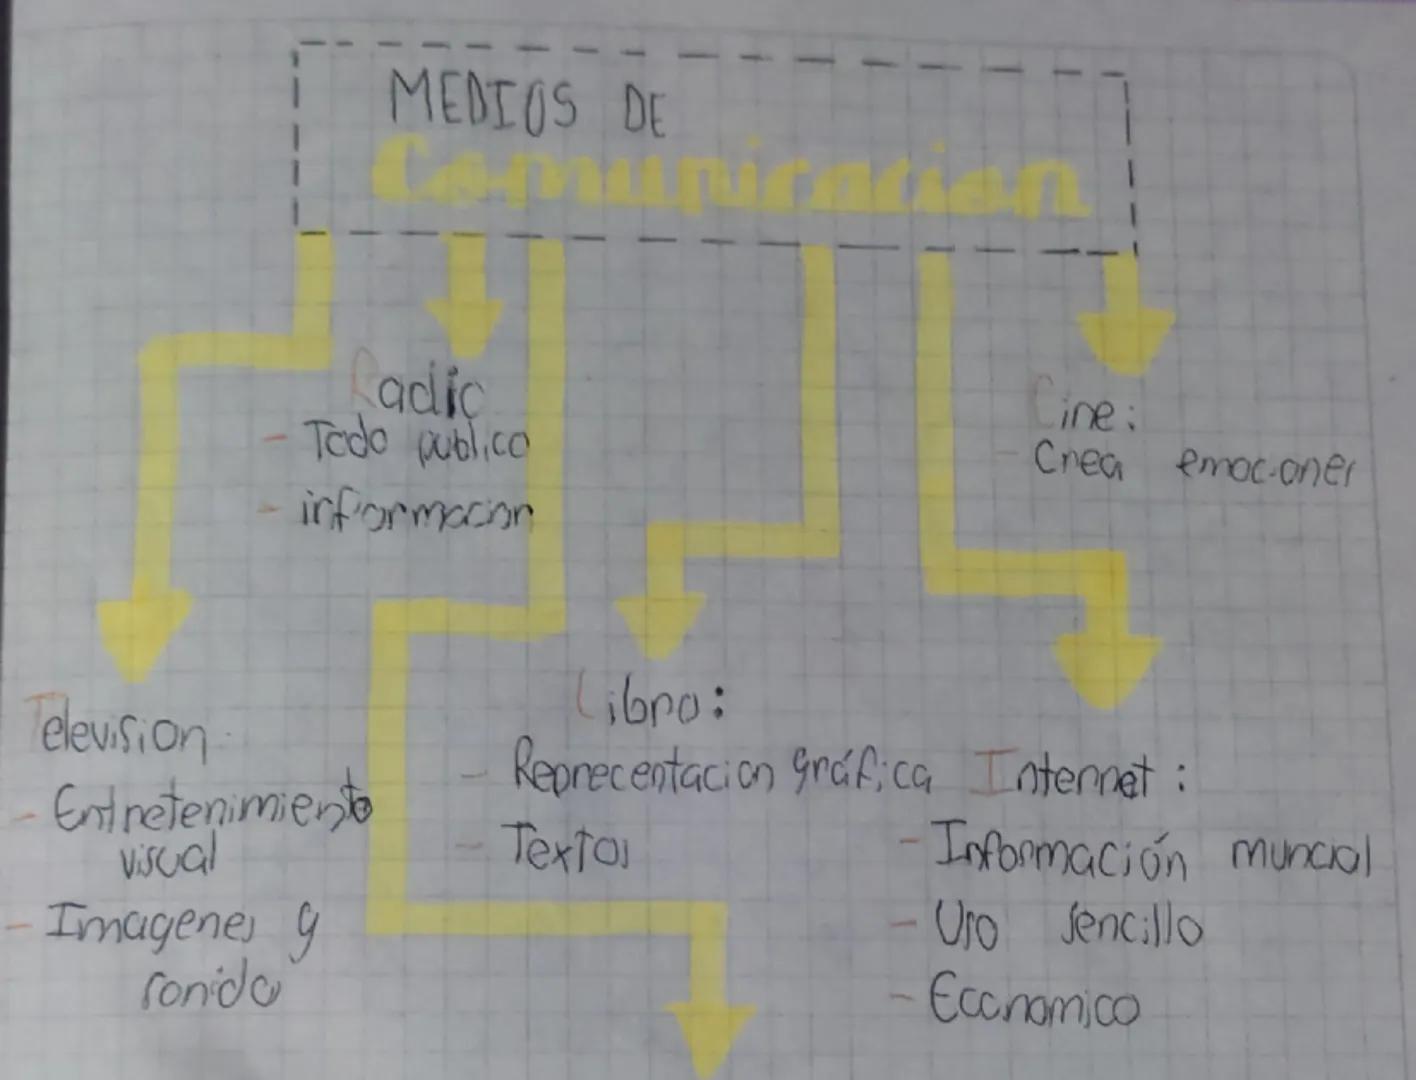 MEDIOS DE
Comunicacion
Radio
- Todo publico
- informacion
Cine:
- Crea emociones
Television
- Entretenimiento
visual
- Imagenes y
sonido
Libro:
- Reprecentacion gráfica
- Textos
Internet:
- Información mundial
- Uso sencillo
- Economico